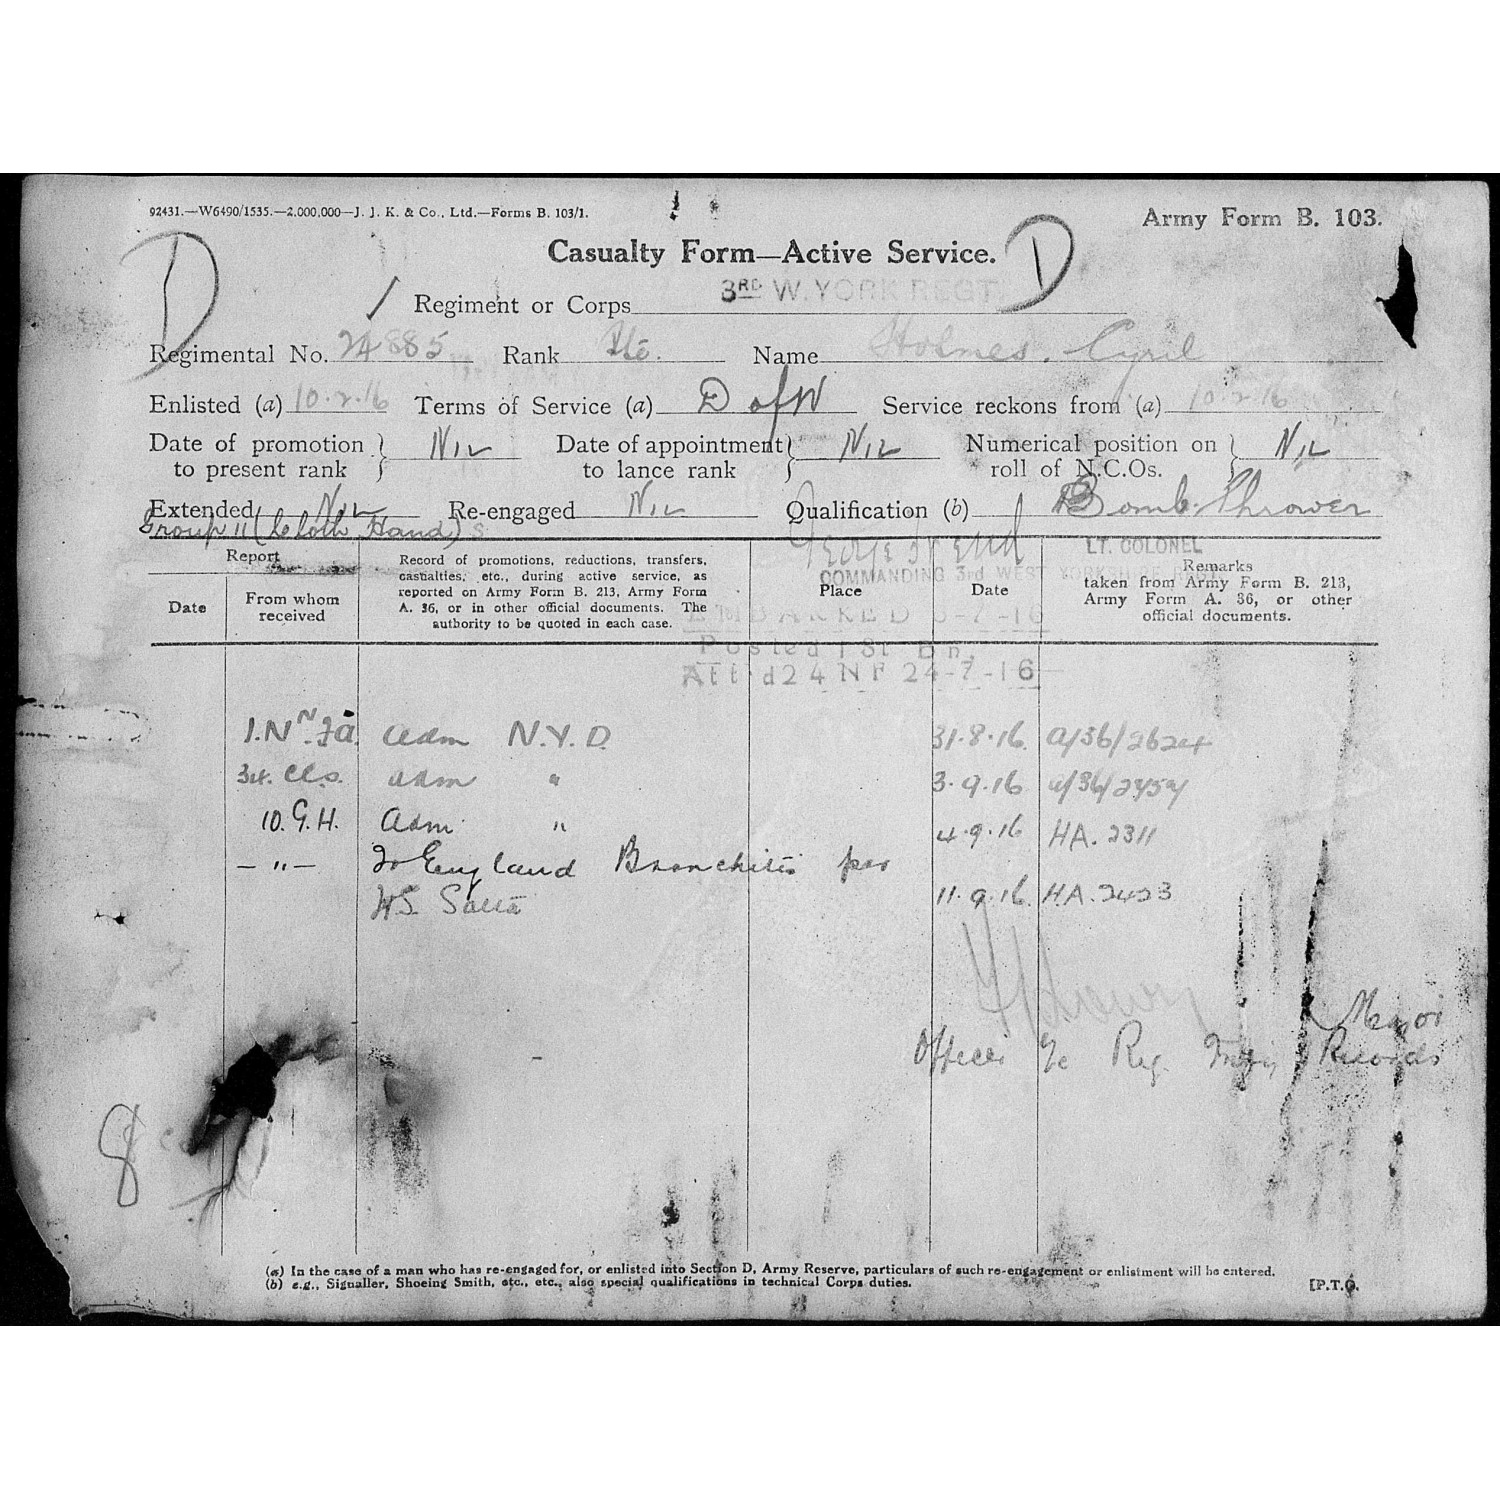 92431.—W6490/1535.—2,000,000—J. J. K. & Co., Ltd.—Forms B. 103/1.
Army Form B. 103.
D Casualty Form—Active Service. D
Regiment or Corps 3RD W. YORK REGT
Regimental No. 24885 Rank Pte. Name Holmes. Cyril
Enlisted (a) 10.2.16 Terms of Service (a) D of W Service reckons from (a) 10.2.16
Date of promotion to present rank } Nil Date of appointment to lance rank } Nil Numerical position on roll of N.C.Os. } Nil
Extended Nil Re-engaged Nil Qualification (b) Bomb. Thrower
Group 11 (Cloth Hand)
LT. COLONEL
COMMANDING 3rd WEST YORKSHIRE
Report
Date
From whom received
Record of promotions, reductions, transfers,
casualties, etc., during active service, as
reported on Army Form B. 213, Army Form
A. 36, or in other official documents. The
authority to be quoted in each case.
Place
Date
Remarks
taken from Army Form B. 213,
Army Form A. 36, or other
official documents.
EMBARKED -7-16
Posted 1 St Bn.
Att'd 24 NF 24-7-16
adm N.Y.D. 31.8.16. a/36/2624
34. CCS. adm " 3.9.16
10. G.H. adm " 4.9.16 HA. 2311
— " — To England Bronchitis per
H.S. 11.9.16. H.A. 2423
Major
Officer i/c Reg. Infy Records
8
(a) In the case of a man who has re-engaged for, or enlisted into Section D, Army Reserve, particulars of such re-engagement or enlistment will be entered.
(b) e.g., Signaller, Shoeing Smith, etc., etc., also special qualifications in technical Corps duties.
[P.T.O.